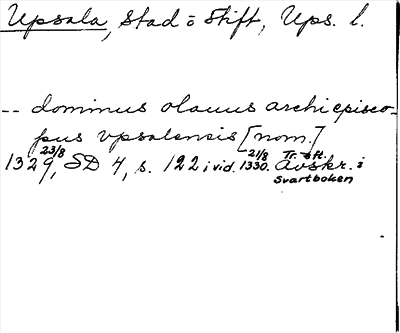 Upsala, Stad o Stift, Ups. l.
-- dominus olauus archiepisco-
pus vpsalensis [nom.]
1329, 23/8 SD 4, s. 122 i vid. 21/8 1330. Tr. eft. Avskr. i
Svartboken